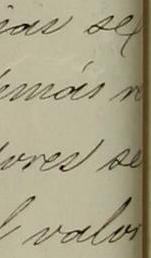 ias se
emás
ores se
l valor